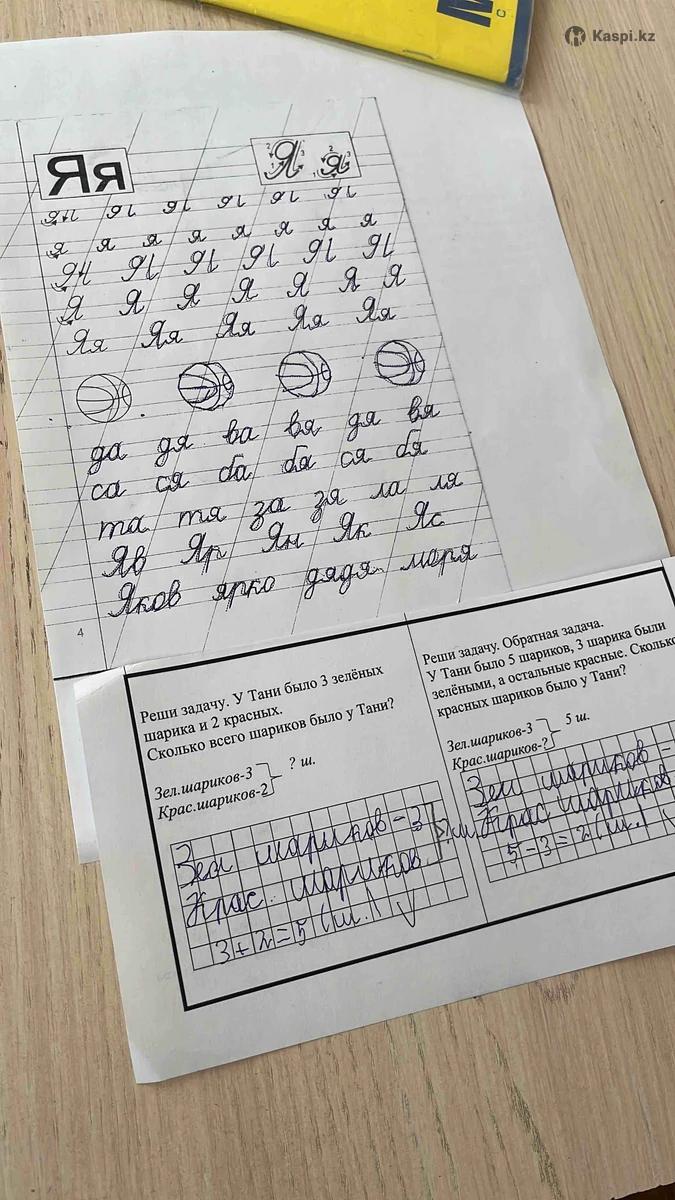 Kaspi.kz
Яя
Я я
я я я я я я я
Я Я Я Я Я Я Я
Яя Яя Яя Яя Яя
да дя ва вя дя вя
са ся ба бя ся бя
та тя за зя ла ля
Яв Яр Ян Як Яс
Яков ярко дядя моря
4
Реши задачу. У Тани было 3 зелёных
шарика и 2 красных.
Сколько всего шариков было у Тани?
Зел.шариков-3
? ш.
Крас.шариков-2
Зел шариков - 3
Крас. шариков
3+2=5 (ш.)
Реши задачу. Обратная задача.
У Тани было 5 шариков, 3 шарика были
зелёными, а остальные красные. Сколько
красных шариков было у Тани?
Зел.шариков-3
5 ш.
Крас.шариков-?
Зел шариков -
Крас шариков
5-3=2 (ш.)